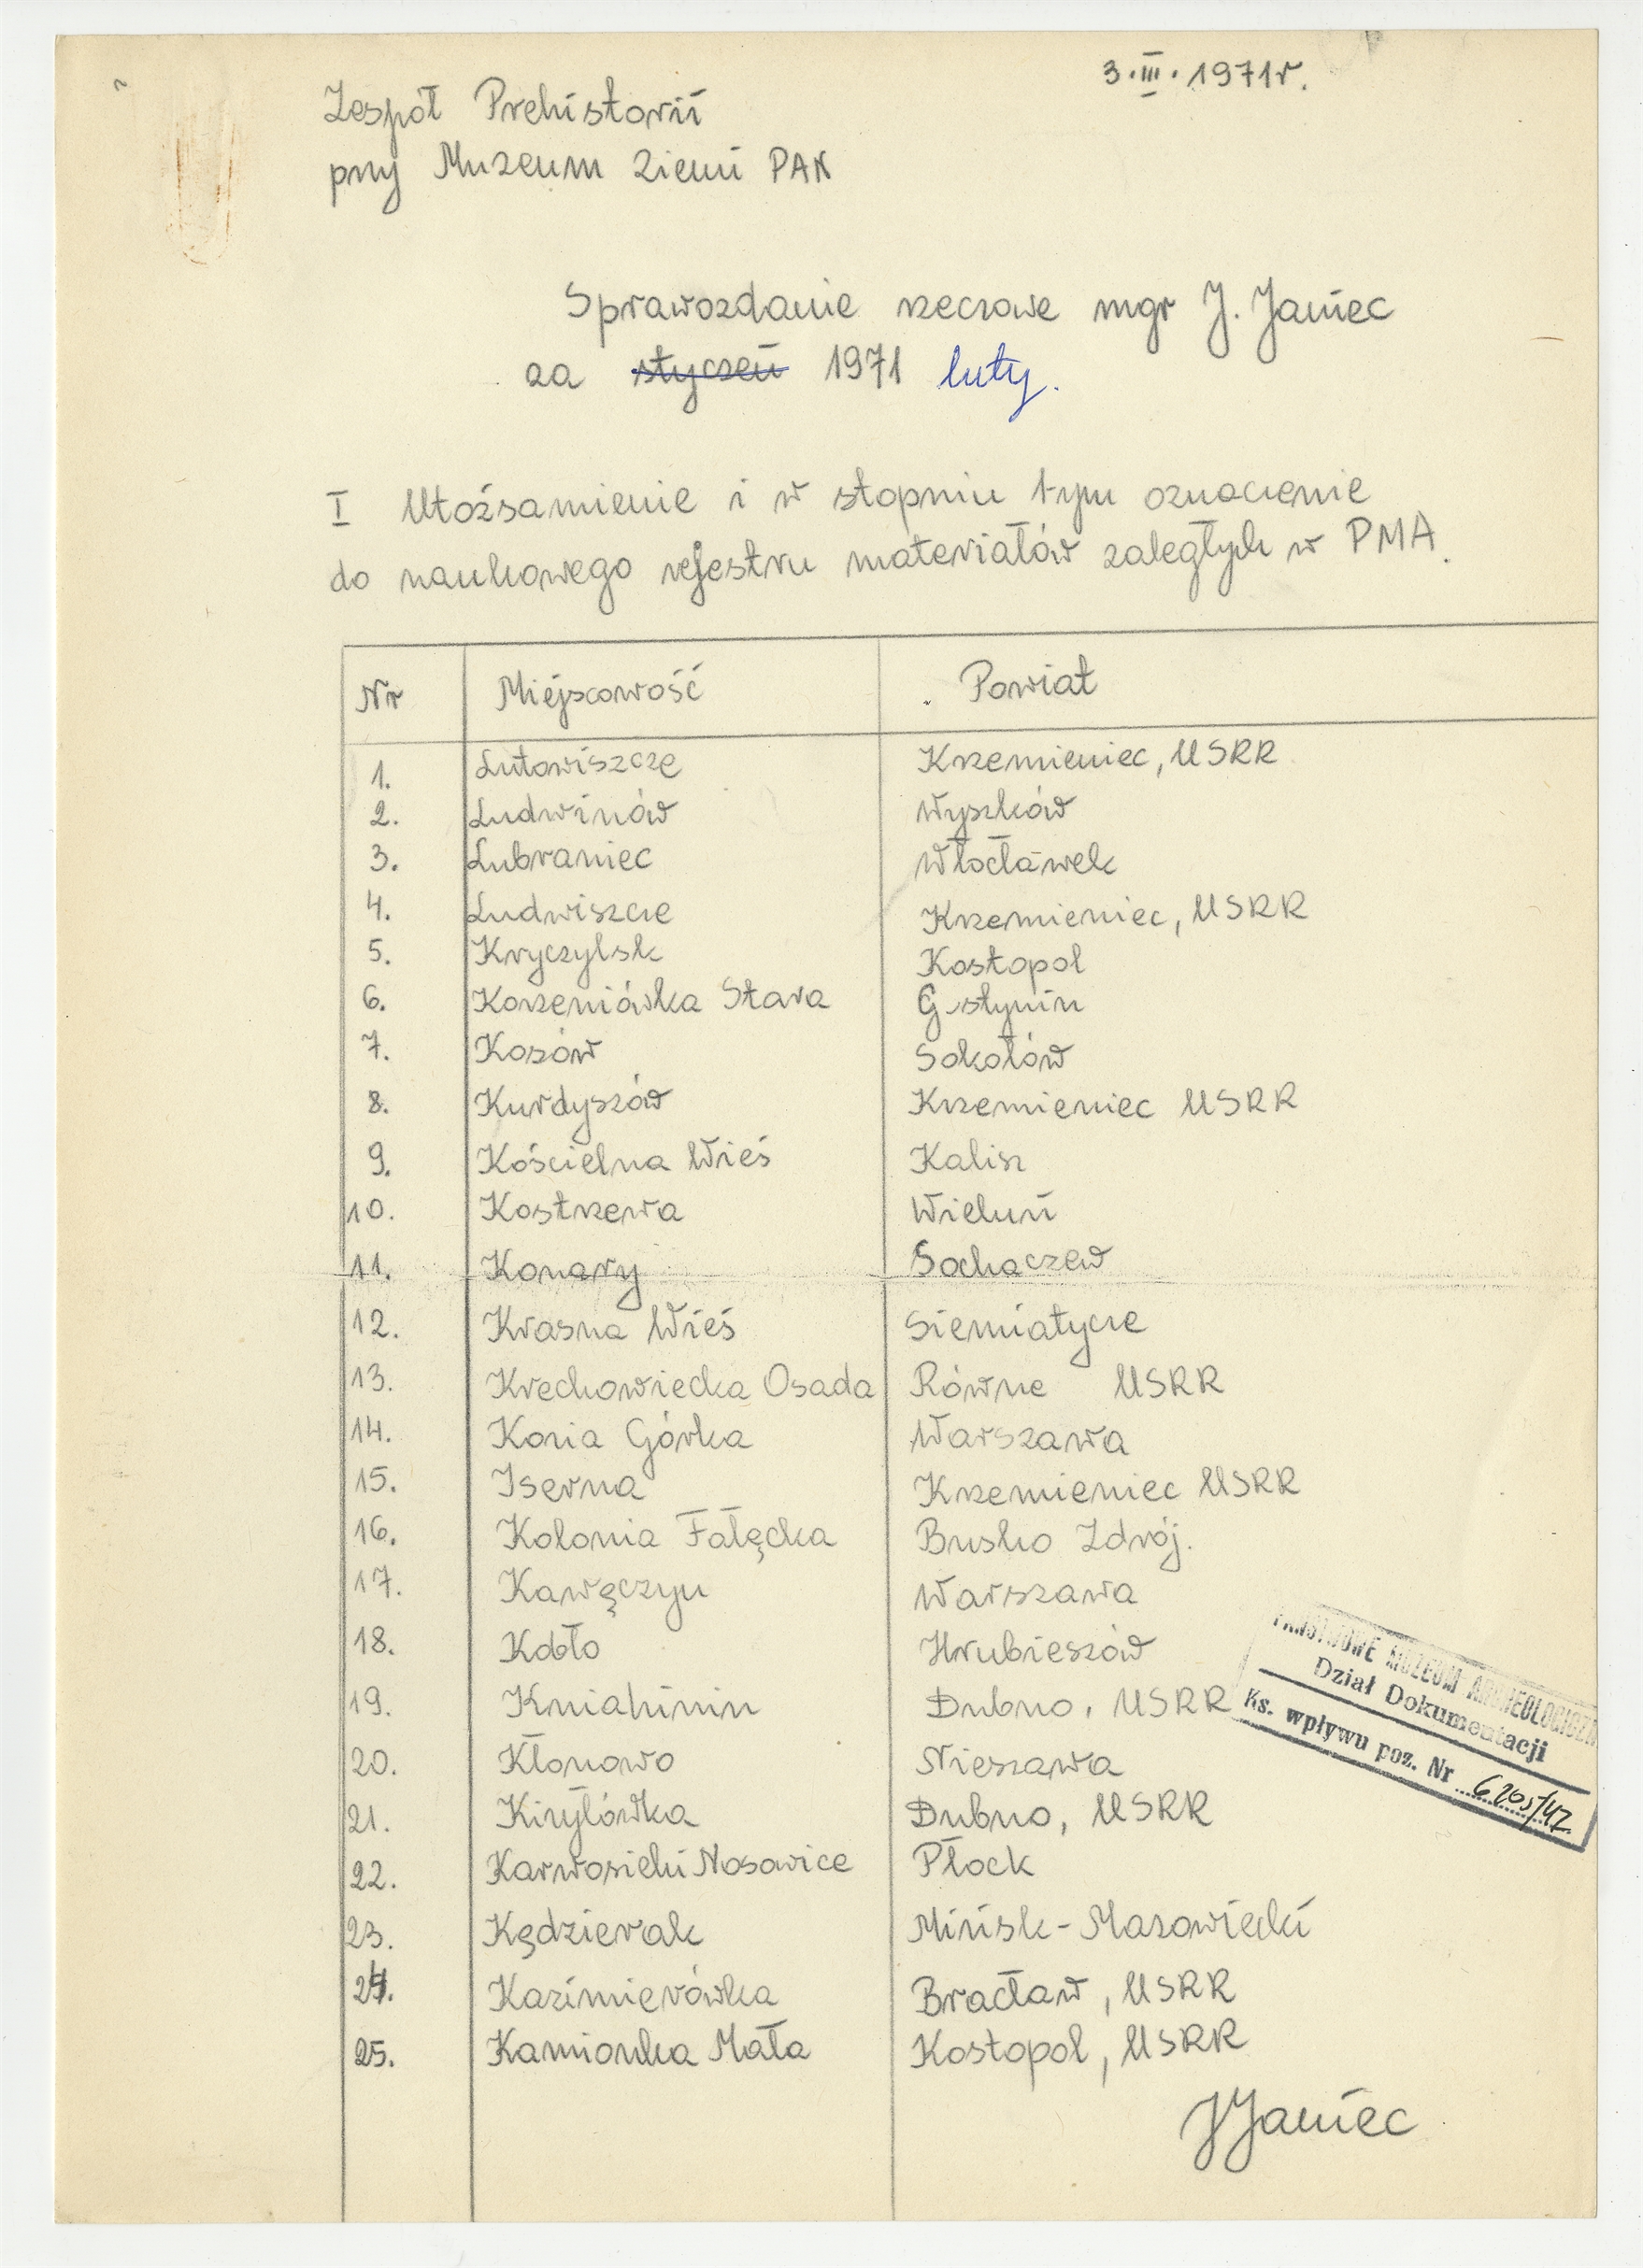 3.III.1971r.
Zespół Prehistorii
przy Muzeum Ziemi PAN
Sprawozdanie rzeczowe mgr J. Janiec
za styczeń 1971 luty.
I Utożsamienie i w stopniu tym oznaczenie
do naukowego rejestru materiałów zaległych w PMA.
Nr Miejscowość Powiat
1. Lutowiszcze Krzemieniec, USRR
2. Ludwinów Wyszków
3. Lubraniec Włocławek
4. Ludwiszcze Krzemieniec, USRR
5. Kryczylsk Kostopol
6. Korzeniówka Stara G stynin
7. Kosów Sokołów
8. Kurdyszów Krzemieniec USRR
9. Kościelna Wieś Kalisz
10. Kostrzewa Wieluń
11. Konary Sochaczew
12. Krasna Wieś Siemiatycze
13. Krechowiecka Osada Równe USRR
14. Kozia Górka Warszawa
15. Iserna Krzemieniec USRR
16. Kolonia Fałęcka Busko Zdrój.
17. Kawęczyn Warszawa
18. Kobło Hrubieszów
19. Kniahinin Dubno, USRR
20. Kłonowo Nieszawa
21. Kiryłówka Dubno, USRR
22. Karwosieki Nosowice Płock
23. Kędzierak Mińsk-Mazowiecki
24. Kazimierówka Bracław, USRR
25. Kamionka Mała Kostopol, USRR
JJaniec
PAŃSTWOWE MUZEUM ARCHEOLOGICZN
Dział Dokumentacji
Ks. wpływu poz. Nr 6205/47